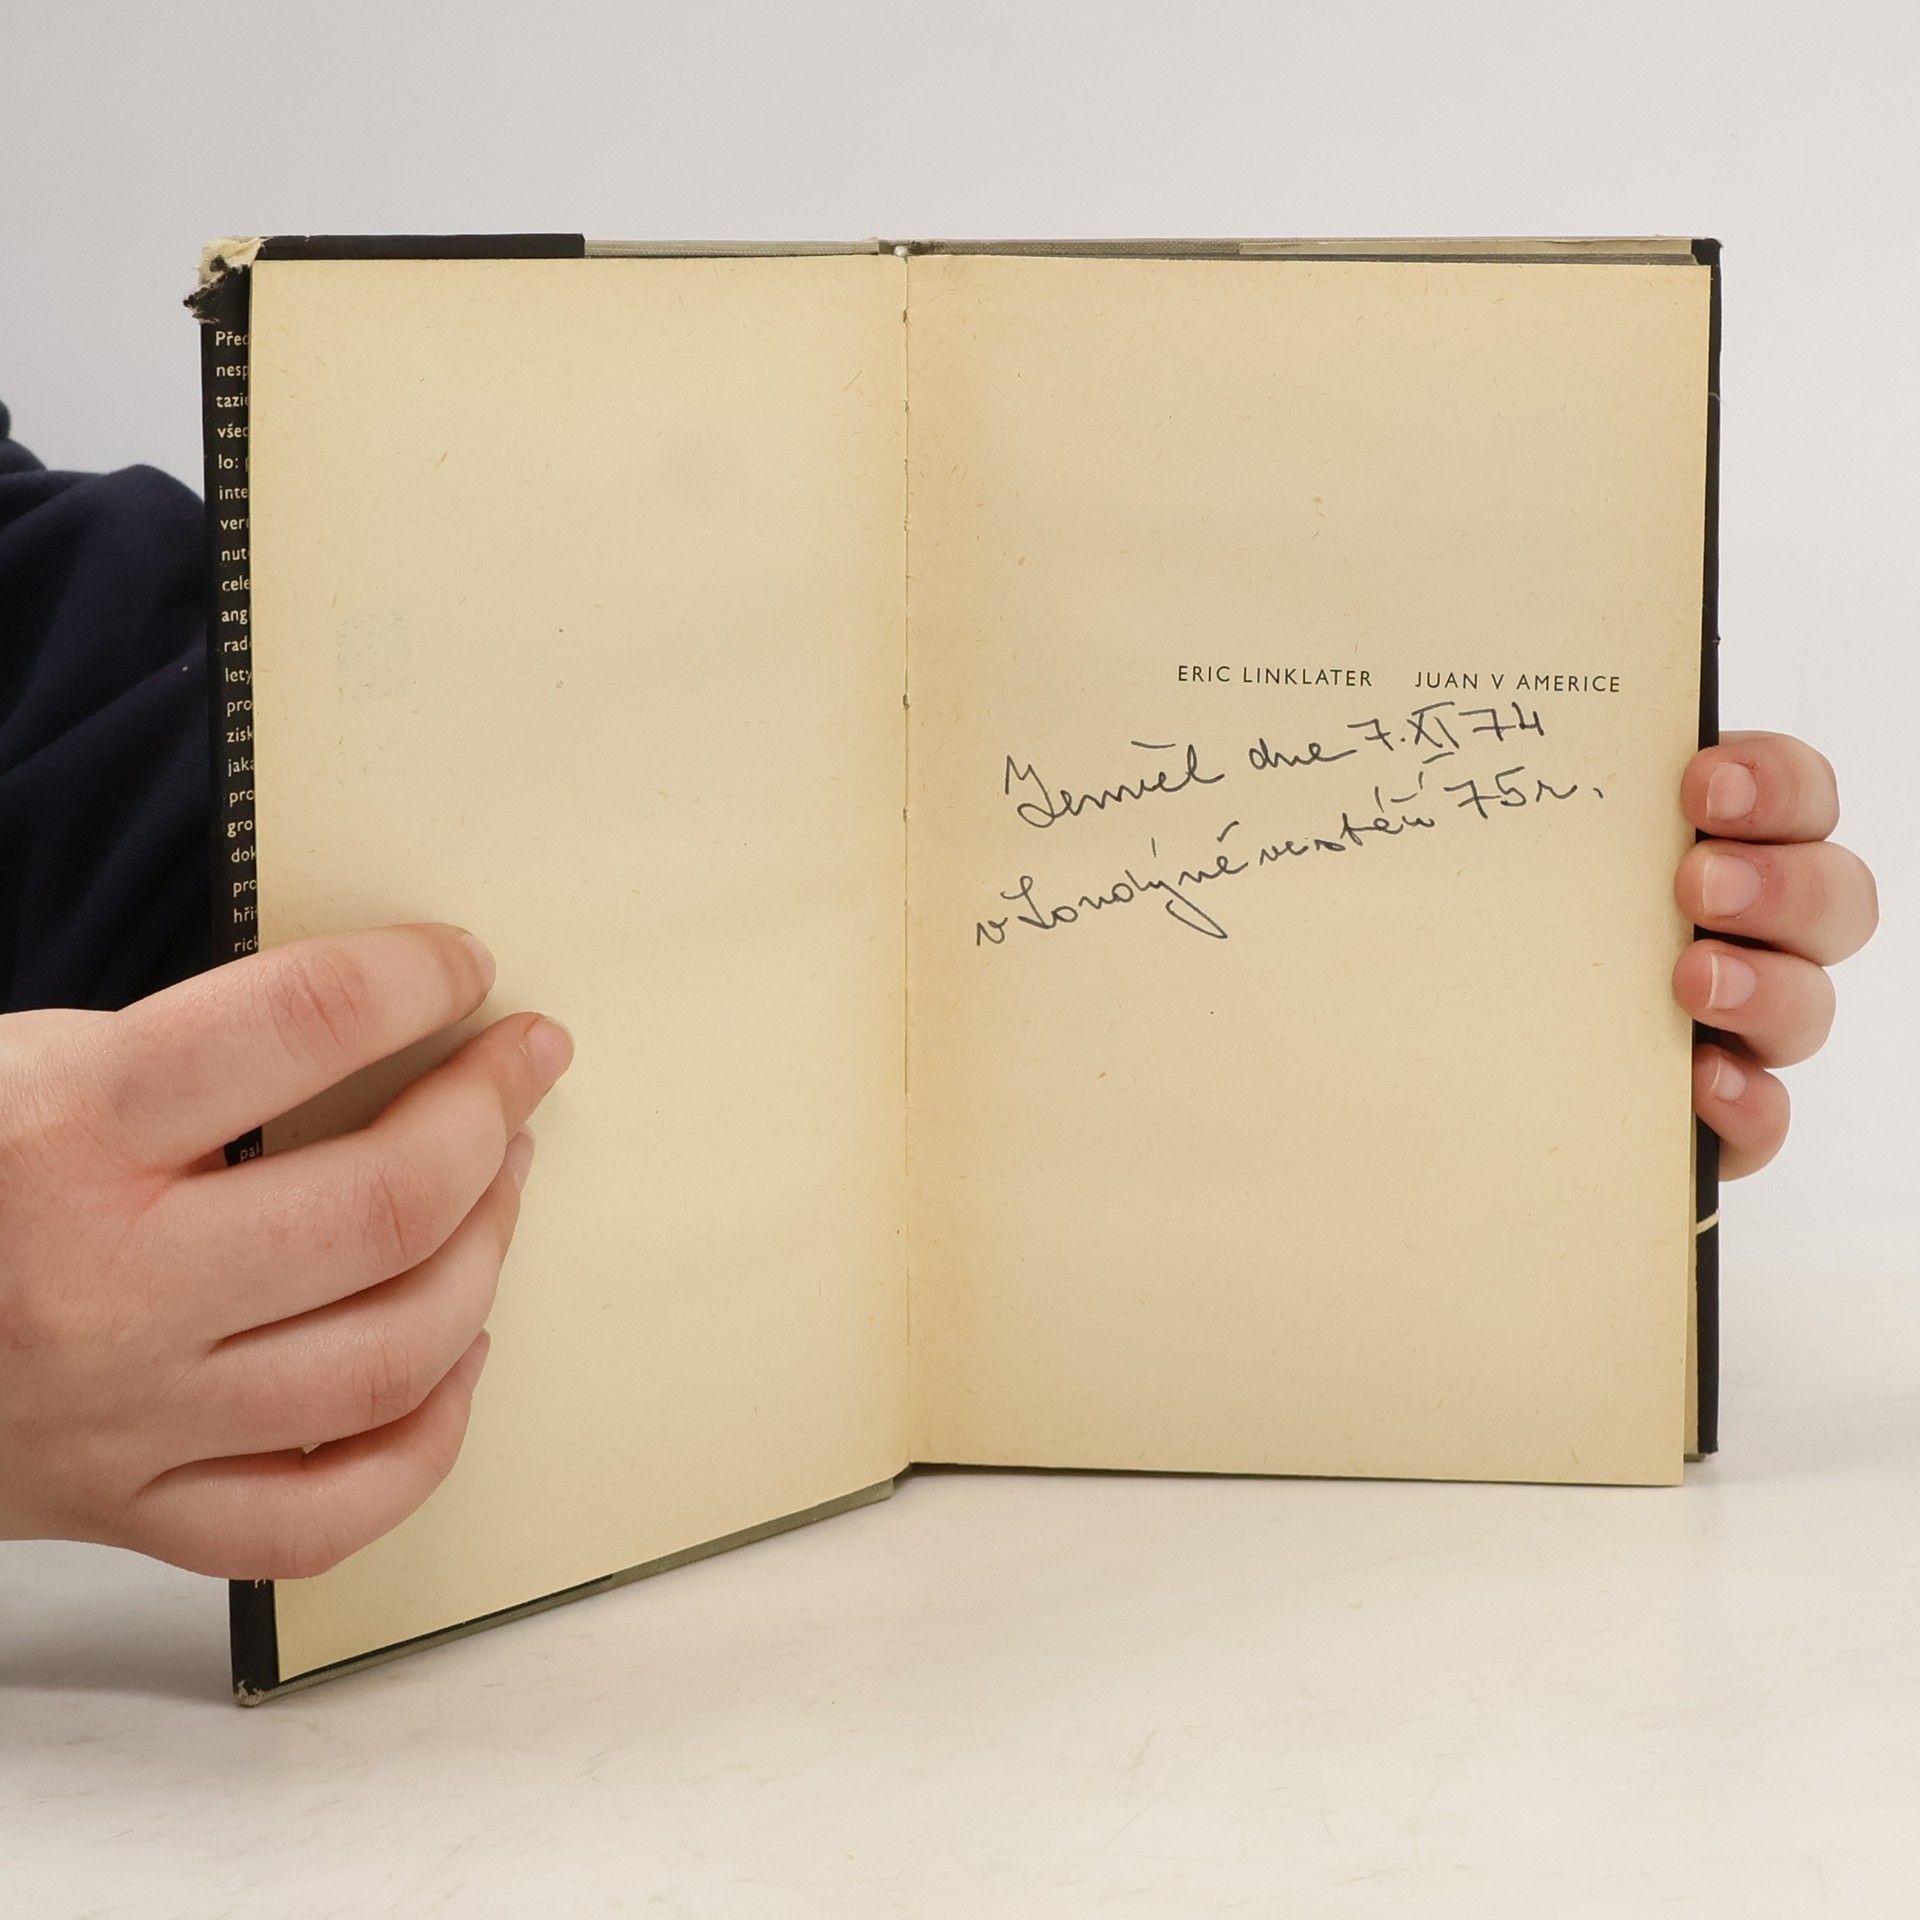 Před
nesp
tazie
všec
lo:
inte
vern
nut
cele
ang
rad
lety
pro
získ
jaká
pro
gro
dok
pro
hři
rick
pak
ERIC LINKLATER JUAN V AMERICE
Zemřel dne 7.XI 74
v Londýně ve stáří 75 r.